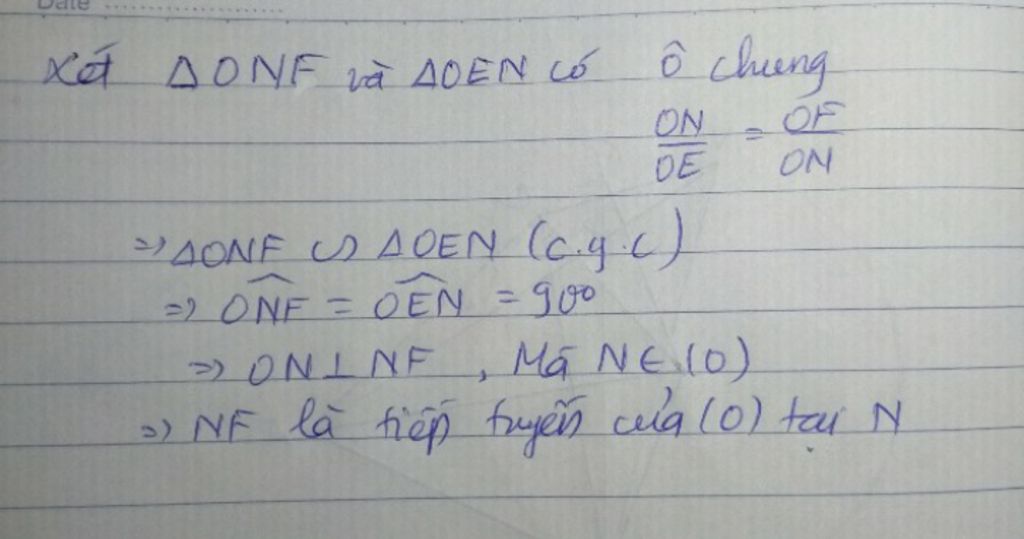 Date
Xét ΔONF và ΔOEN có Ô chung
ON/OE = OF/ON
=> ΔONF ∽ ΔOEN (c.g.c)
=> \widehat{ONF} = \widehat{OEN} = 90°
=> ON⊥NF, Mà N∈(O)
=> NF là tiếp tuyến của (O) tại N